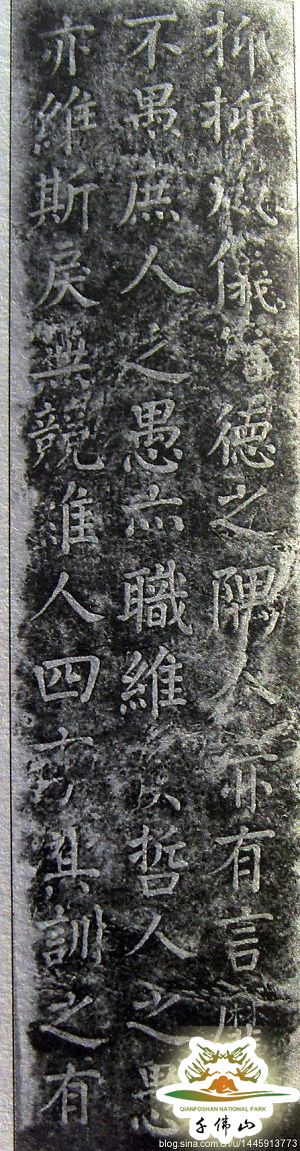 抑抑威儀維德之隅人亦有言靡
不愚庶人之愚亦職維疾哲人之愚
亦維斯戾無競維人四方其訓之有
QIANFOSHAN NATIONAL PARK
千佛山
blog.sina.com.cn/u/1445913773